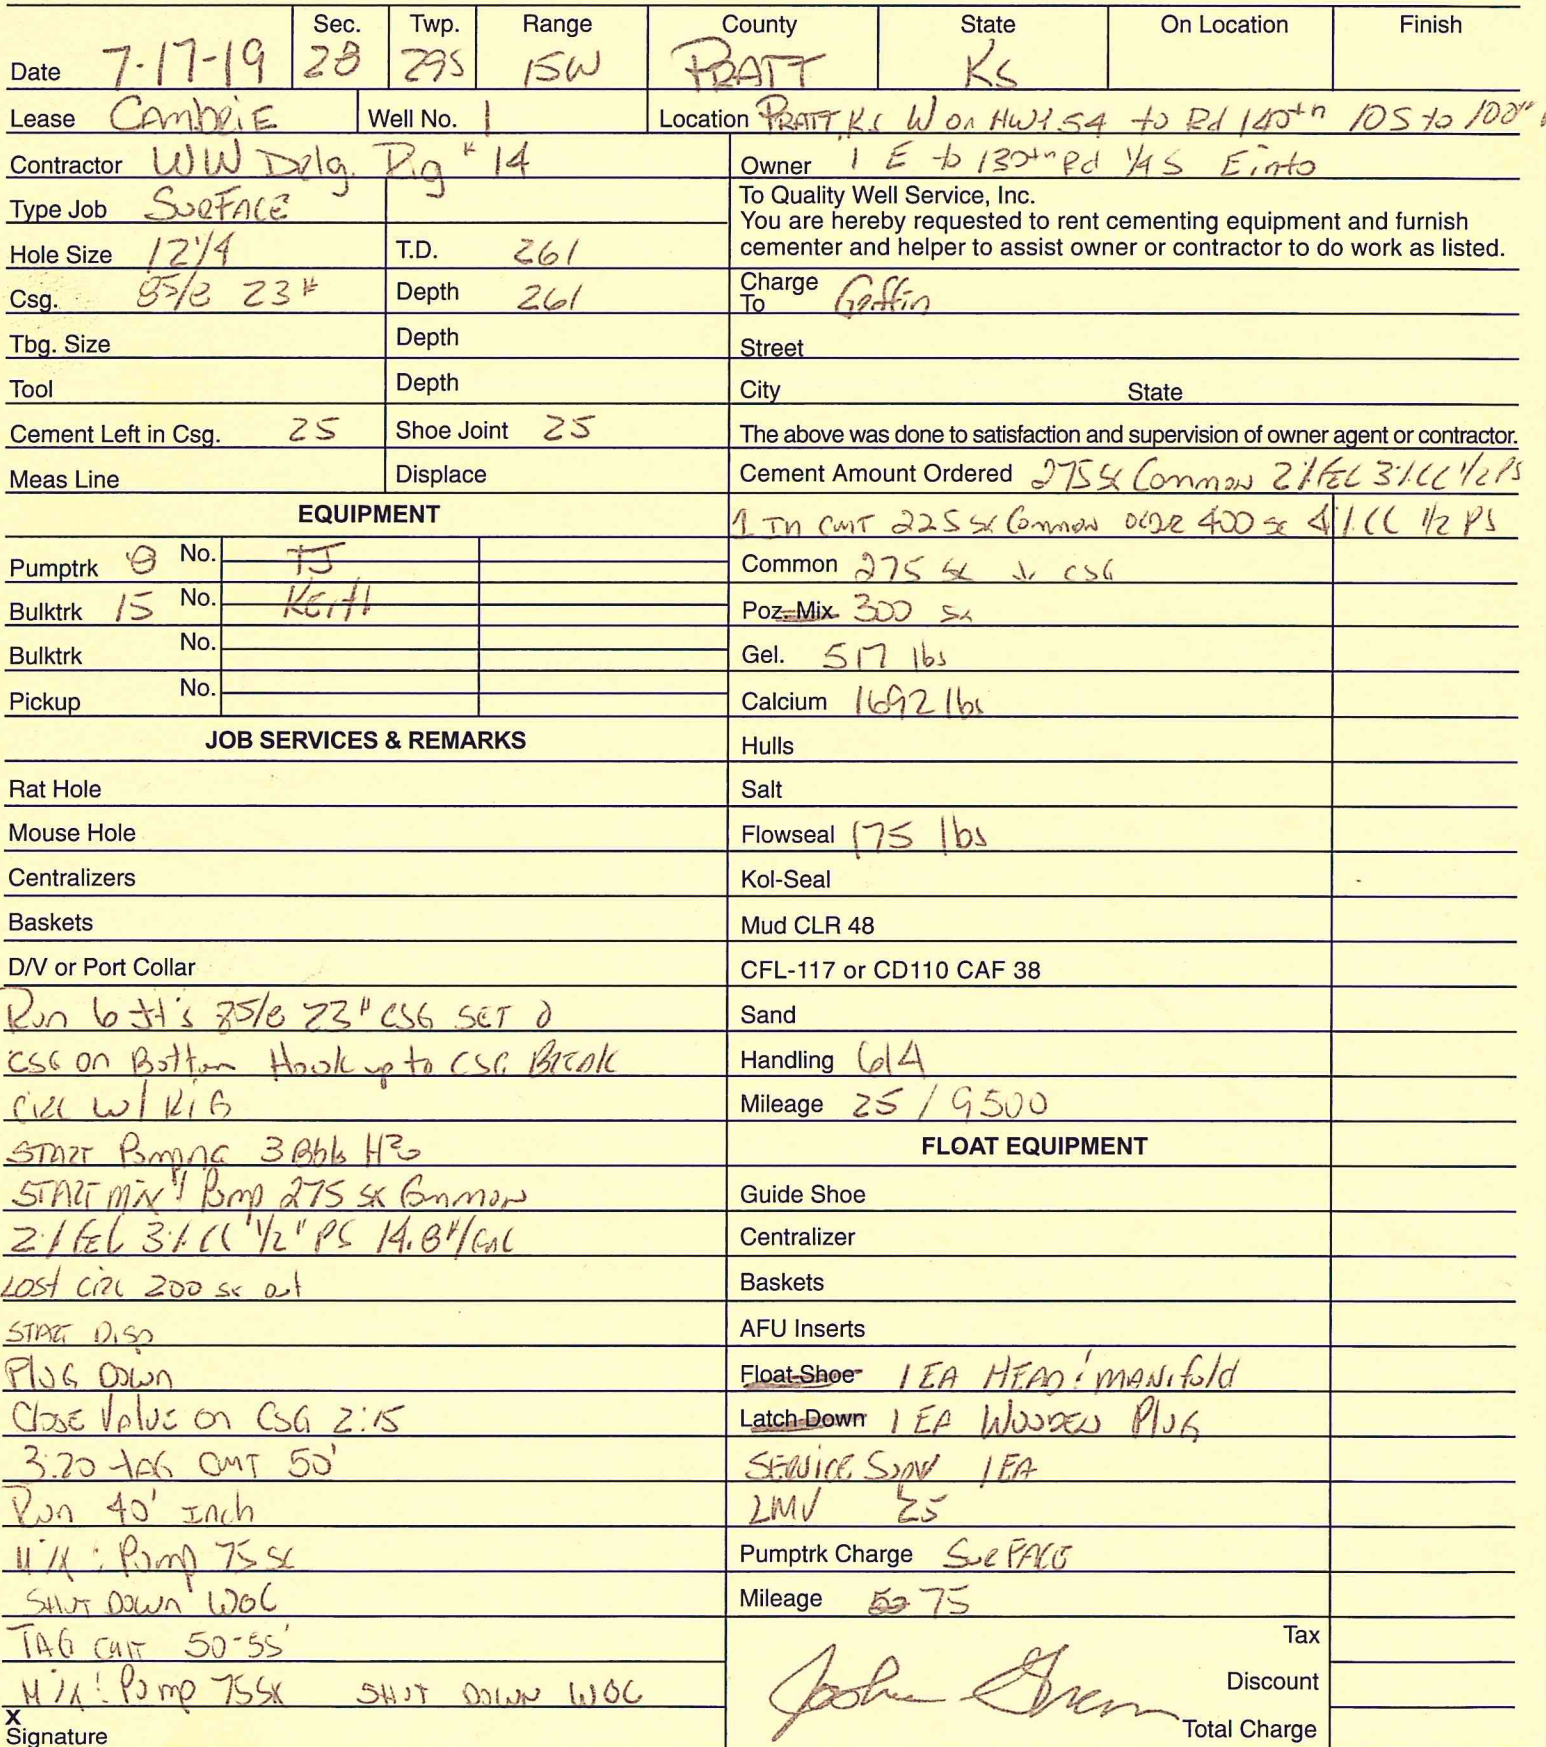 Sec. Twp. Range County State On Location Finish
Date 7-17-19 28 29S 15W PRATT KS
Lease CAMBRIE Well No. 1 Location PRATT, KS W on HWY 54 to Rd 140th 10 S to 100th
Contractor WW Drlg. Rig # 14 Owner 1 E to 130th Rd 1/4 S E into
Type Job SURFACE
To Quality Well Service, Inc.
You are hereby requested to rent cementing equipment and furnish
cementer and helper to assist owner or contractor to do work as listed.
Hole Size 12 1/4 T.D. 261
Csg. 8 5/8 23# Depth 261 Charge To Griffin
Tbg. Size Depth Street
Tool Depth City State
Cement Left in Csg. 25 Shoe Joint 25 The above was done to satisfaction and supervision of owner agent or contractor.
Meas Line Displace Cement Amount Ordered 275 sx Common 2% GEL 3% CC 1/2 PS
EQUIPMENT
1 IN CMT 225 sx Common ORDR 400 sx 4% CC 1/2 PS
Pumptrk 8 No. TJ Common 275 sx ↓ CSG
Bulktrk 15 No. KEITH Poz. Mix 300 sx
Bulktrk No. Gel. 517 lbs
Pickup No. Calcium 1692 lbs
JOB SERVICES & REMARKS Hulls
Rat Hole Salt
Mouse Hole Flowseal 175 lbs
Centralizers Kol-Seal
Baskets Mud CLR 48
D/V or Port Collar CFL-117 or CD110 CAF 38
Run 6 Jt's 8 5/8 23# CSG SET @ Sand
CSG on Bottom Hook up to CSG BREAK Handling 614
CIRC W/ RIG Mileage 25 / 9500
START Pumping 3 Bbls H2O FLOAT EQUIPMENT
START MIX & Pump 275 sx Common Guide Shoe
2% GEL 3% CC 1/2# PS 14.8#/GAL Centralizer
LOST CIRC 200 sx out Baskets
START DISP AFU Inserts
PLUG DOWN Float Shoe 1 EA HEAD & MANifold
Close Valve on CSG 2:15 Latch Down 1 EA WOODEN PLUG
3:20 TAG CMT 50' SERVICE SUPV 1 EA
Run 40' Inch LMV 25
MIX & Pump 75 sx Pumptrk Charge SURFACE
SHUT DOWN WOC Mileage 50 75
TAG CMT 50-55' Tax
MIX & Pump 75 sx SHUT DOWN WOC Discount
X
Signature Total Charge